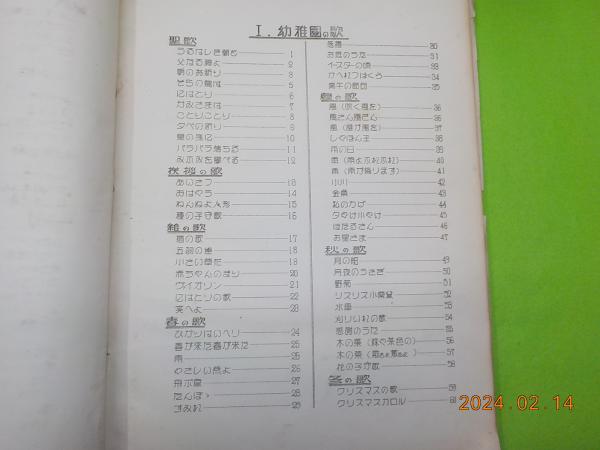 I. 幼稚園の歌
聖歌
うるはしき朝も 1
父なる神よ 2
朝のお祈り 3
そらの鳥は 5
にはとり 6
かみさまは 7
ことりことり 8
夕べの祈り 9
10
パラパラ落ちる 11
12
挨拶の歌
あいさつ 13
おはやう 14
ねんねよ人形 15
種の子守歌 16
雛の歌
17
五羽の 18
小さい草花 19
赤ちゃんの 20
ヴイオリン 21
にはとりの歌 22
笑へよ 23
春の歌
24
春が来た春が来た 25
雨
やさしい燕よ 26
飛ぶ 27
たんぽゝ 28
すみれ 29
30
お庭のうた 31
イースターの頃 33
34
端午の節句 35
夏の歌
風(吹く風を) 36
風さん風さん 36
風(誰が風を) 37
しやぼん玉 38
雨の日 39
雨(雨よふれふれ) 40
雨(雨が降ります) 41
小川 42
金魚 43
私のかげ 44
夕やけ小やけ 45
ほたるさん 46
お星さま 47
秋の歌
月の船 49
月夜のうさぎ 50
野菊 51
リスリス小栗鼠 52
水車 53
刈りいれの歌 54
感謝のうた 55
木の葉(緑や茶色の) 56
木の葉 57
花の子守歌 58
冬の歌
クリスマスの歌 59
クリスマスカロル
2024.02.14